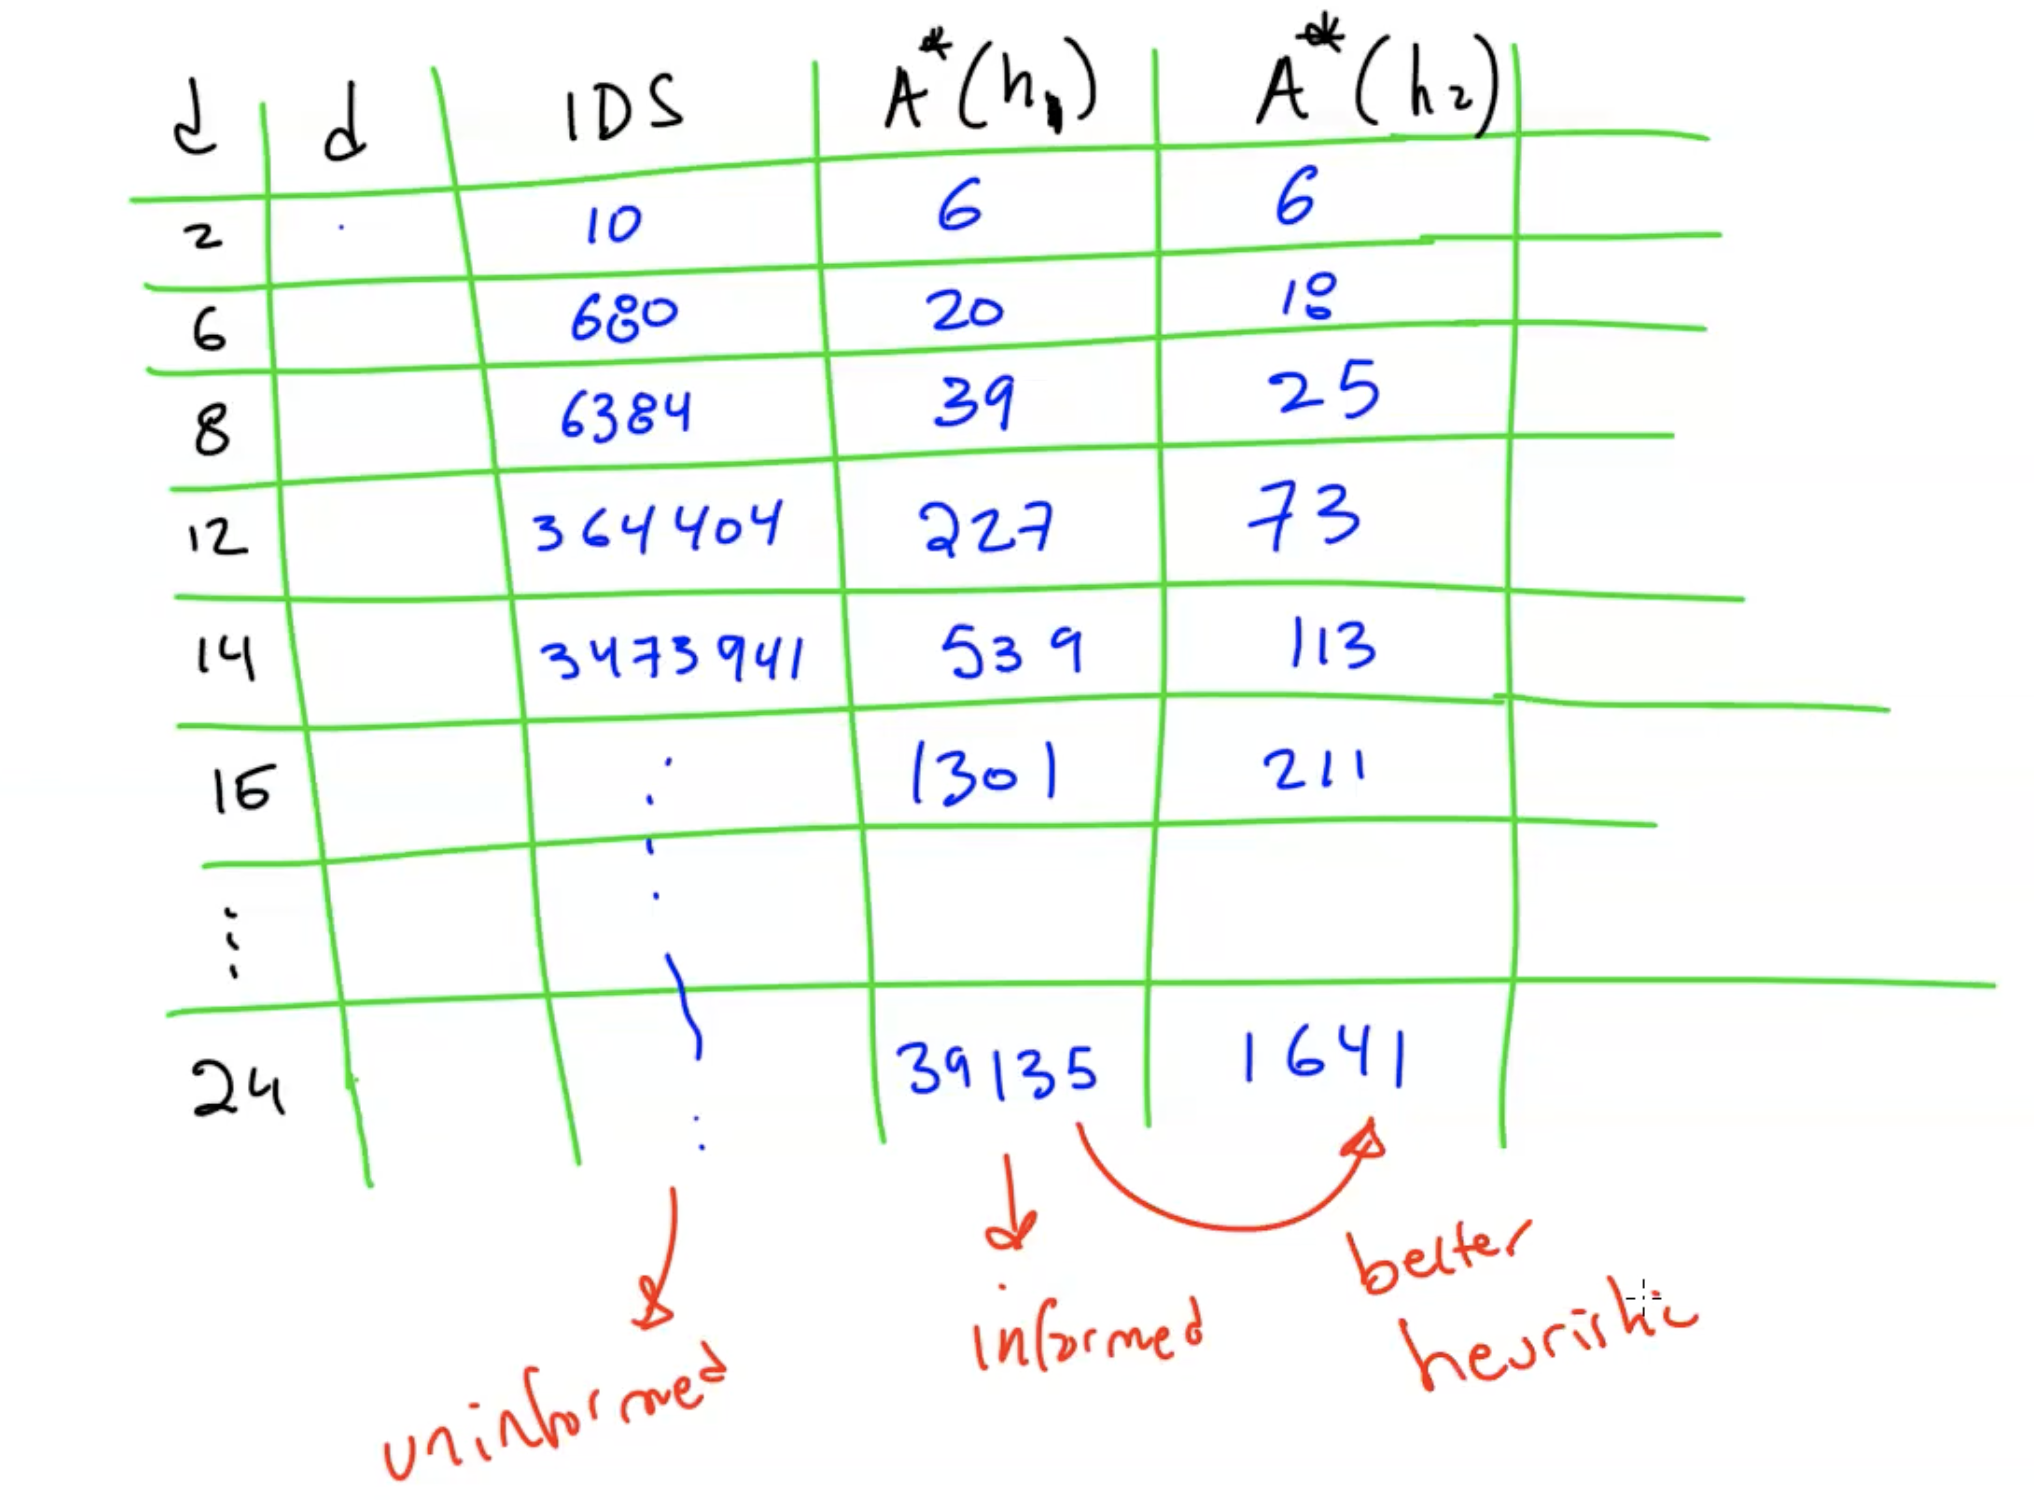 d d IDS A*(h1) A*(h2)
2 . 10 6 6
6 680 20 18
8 6384 39 25
12 364404 227 73
14 3473941 539 113
16 1301 211
⋮
24 39135 1641
uninformed informed better
heuristic